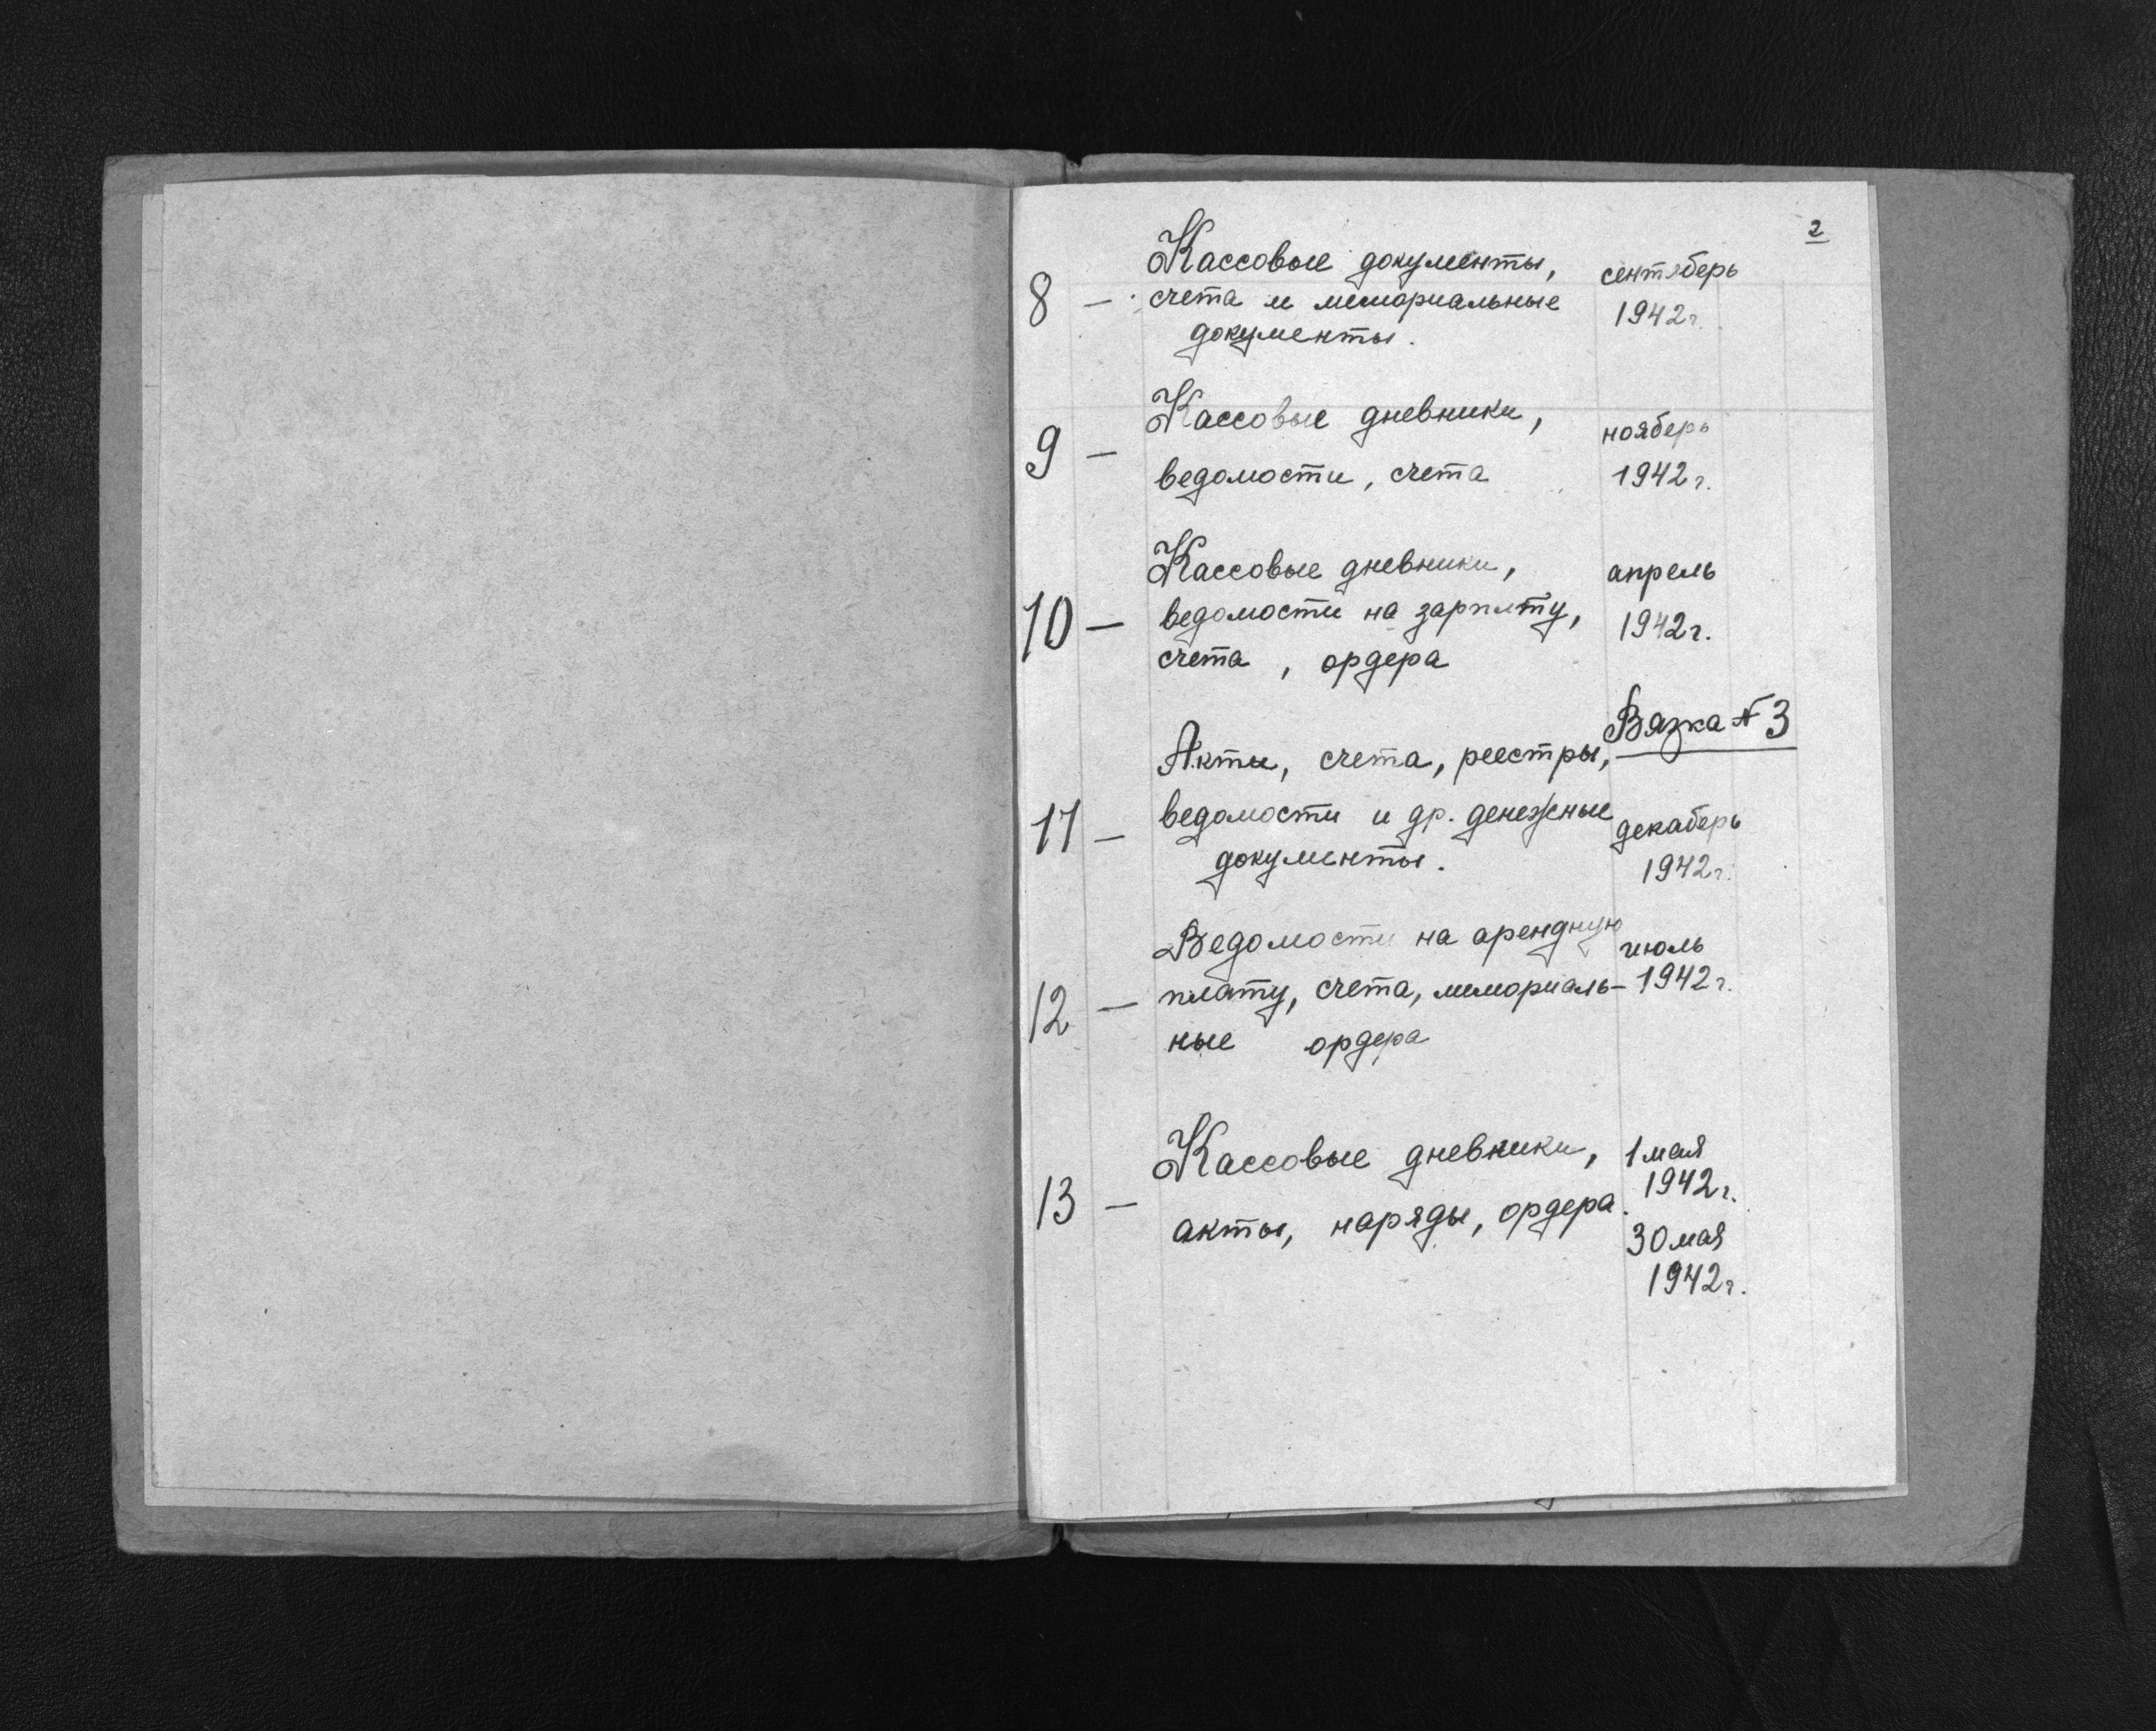 2
Кассовые документы, сентяберь
8 — счета и мемориальные 1942г.
документы.
Кассовые дневники, нояберь
9 —
ведомости, счета 1942г.
Кассовые дневники, апрель
10 — ведомости на зарплту, 1942г.
счета, ордера
Вязка № 3
Акты, счета, реестры,
11 — ведомости и др. денежные декаберь
документы. 1942г.
Ведомости на арендную июль
12 — плату, счета, мемориаль- 1942г.
ные ордера
Кассовые дневники, 1 мая
1942г.
13 — акты, наряды, ордера.
30 мая
1942г.